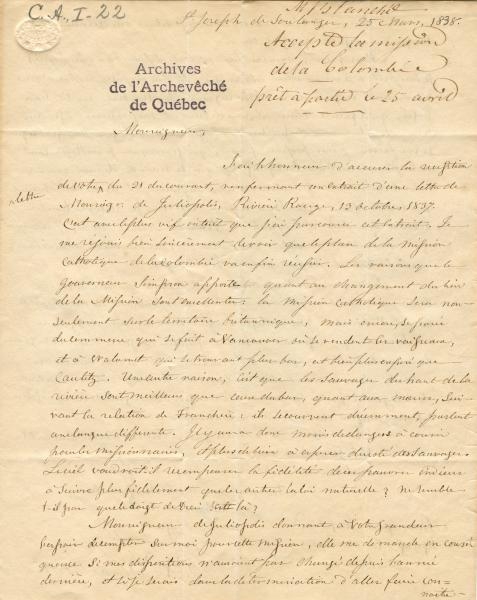 C. A., I-22
Mr Blanchet
St Joseph de Soulanges, 25 Mars, 1838.
Accepte la mission
de la Colombie
prêt à partir le 25 avril
Archives
de l'Archevêché
de Québec
Monseigneur,
J'ai l'honneur d'accuser la réception
de votre lettre du 21 du courant, renfermant un extrait d'une lettre de
Monseigr de Juliopolis, Rivière Rouge, 13 octobre 1837.
C'est avec le plus vif intérêt que j'ai parcouru cet extrait. Je
me réjouis bien sincèrement de voir que le plan de la Mission
Catholique de la Colombie va enfin réussir. Les raisons que le
Gouverneur Simpson apporte quant au changement du lieu
de la Mission sont excellentes: la mission catholique sera non-
seulement sur le territoire britannique, mais encore séparée
du commerce qui se fait à Vancouver où se rendent les vaisseaux,
et à Walamet qui se trouve plus bas, et bien plus exposé que
Caulitz. Une autre raison, c'est que les Sauvages du haut de la
rivière sont meilleurs que ceux du bas, quant aux mœurs, sui-
vant la relation de Franchère: ils se couvrent décemment, parlent
une langue différente. Il y aura donc moins de dangers à courir
pour les missionnaires, et plus de bien à espérer du côté des Sauvages.
Le ciel voudrait-il récompenser la fidélité de ces pauvres indiens
à suivre plus fidèlement que les autres la loi naturelle? ne semble-
t-il pas que le doigt de Dieu est là?
Monseigneur de Juliopolis donnant à Votre Grandeur
l'espoir de compter sur moi pour cette mission, elle me demande en consé-
quence si mes dispositions n'auraient pas changé depuis l'année
dernière, et si je serais dans la détermination d'aller faire con-
naître